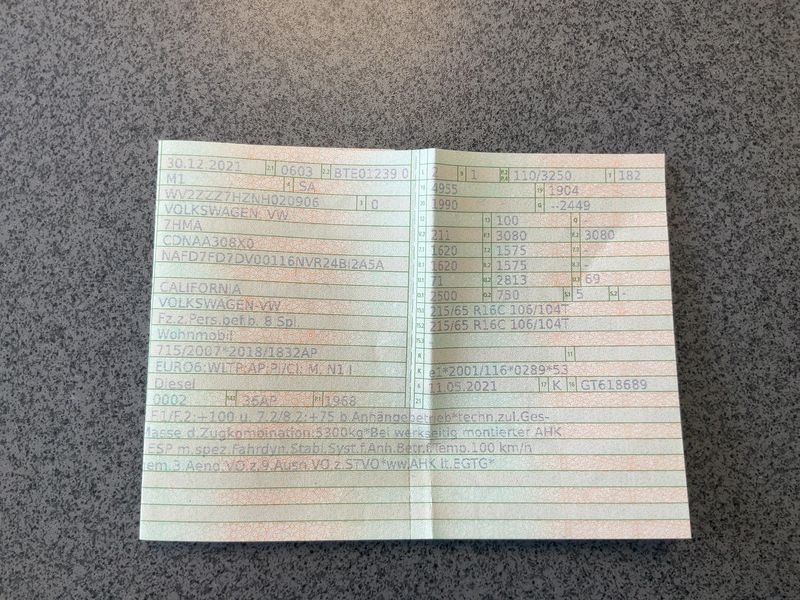 30.12.2021 2.1 0603 2.2 BTE01239 0
M1 4 SA
WV2ZZZ7HZNH020906 3 0
VOLKSWAGEN, VW
7HMA
CDNAA308X0
NAFD7FD7DV00116NVR24BI2A5A
CALIFORNIA
VOLKSWAGEN-VW
Fz.z.Pers.bef.b. 8 Spl.
Wohnmobil
715/2007*2018/1832AP
EURO6;WLTP;AP;PI/CI; M, N1 I
Diesel
0002 14.1 36AP P.1 1968
L 2 9 1 110/3250 T 182
18 4955 19 1904
20 1990 G --2449
12 - 13 100 Q -
V.7 211 F.1 3080 F.2 3080
7.1 1620 7.2 1575 7.3 -
8.1 1620 8.2 1575 8.3 -
U.1 71 U.2 2813 U.3 69
O.1 2500 O.2 750 S.1 5 S.2 -
15.1 215/65 R16C 106/104T
15.2 215/65 R16C 106/104T
15.3 -
R 11
K e1*2001/116*0289*53
6 11.05.2021 17 K 16 GT618689
21
F.1/F.2:+100 u. 7.2/8.2:+75 b.Anhängebetrieb*techn.zul.Ges-
Masse d.Zugkombination:5300kg*Bei werkseitig montierter AHK
ESP m.spez.Fahrdyn.Stabi.Syst.f.Anh.Betr.f.Temp.100 km/h
gem.3.Aend.VO.z.9.Ausn.VO.z.STVO*ww.AHK lt.EGTG*